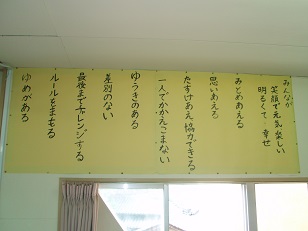 みんなが
笑顔で元気楽しい
明るくて、幸せ
みとめあえる
思いあえる
たすけあえ協力できる
一人でかかえこまない
ゆうきのある
差別のない
最後までチャレンジする
ルールをまもる
ゆめがある